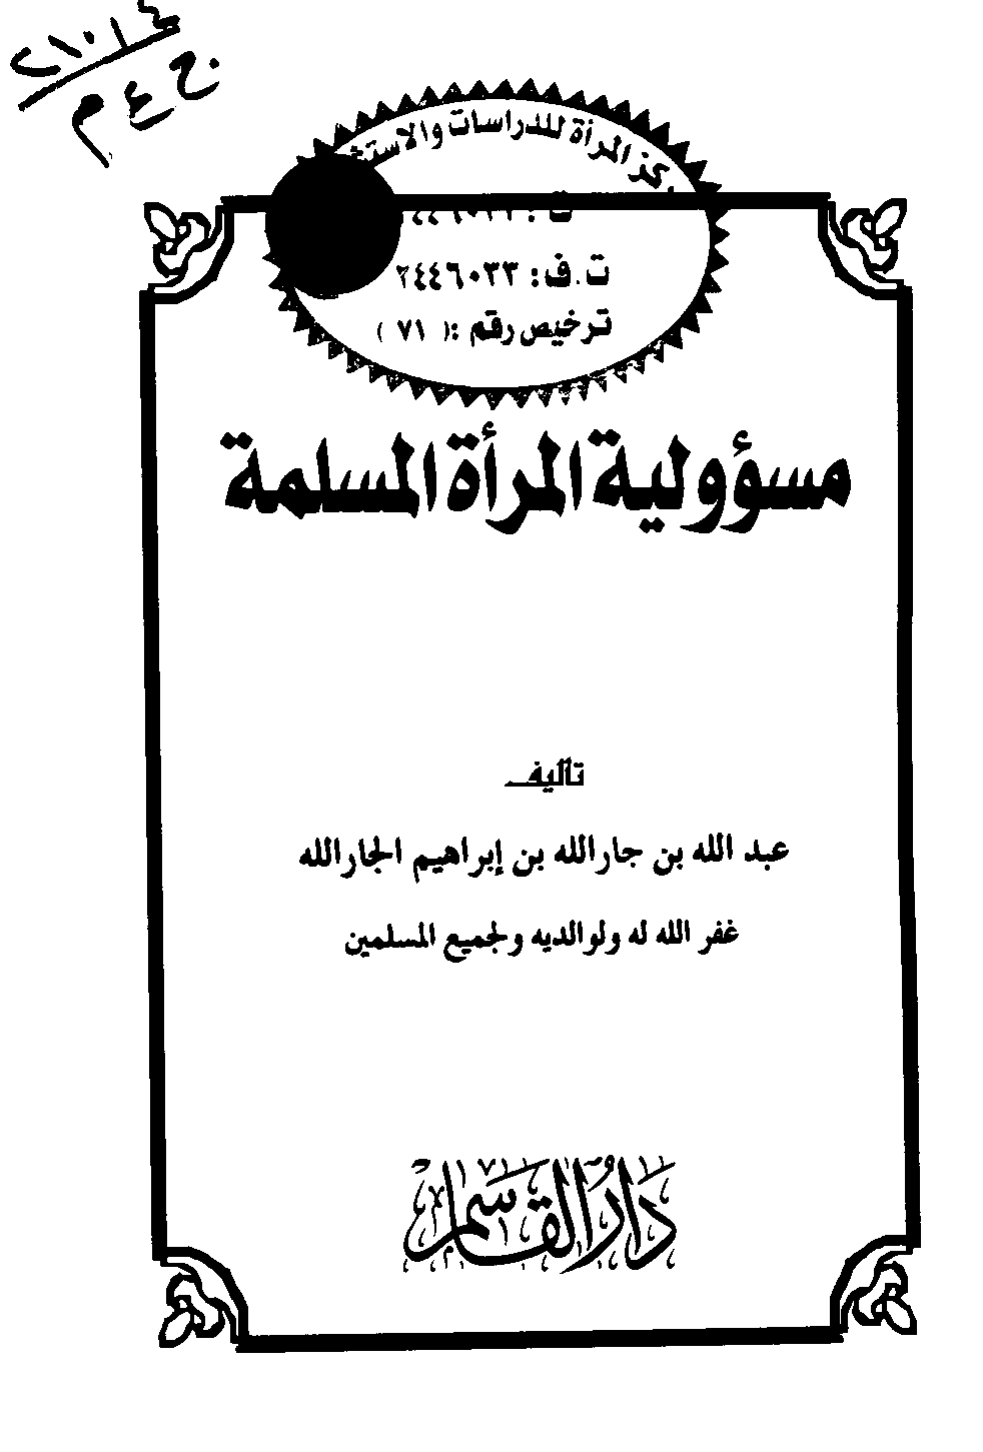 ٢١٠,٤
ج ع م
مركز المرأة للدراسات والاستش
ت :
ت.ف: ٢٤٤٦٠٣٣
ترخيص رقم :( ٧١ )
مسؤولية المرأة المسلمة
تأليف
عبد الله بن جارالله بن إبراهيم الجارالله
غفر الله له ولوالديه ولجميع المسلمين
دَارُ القَاسِم